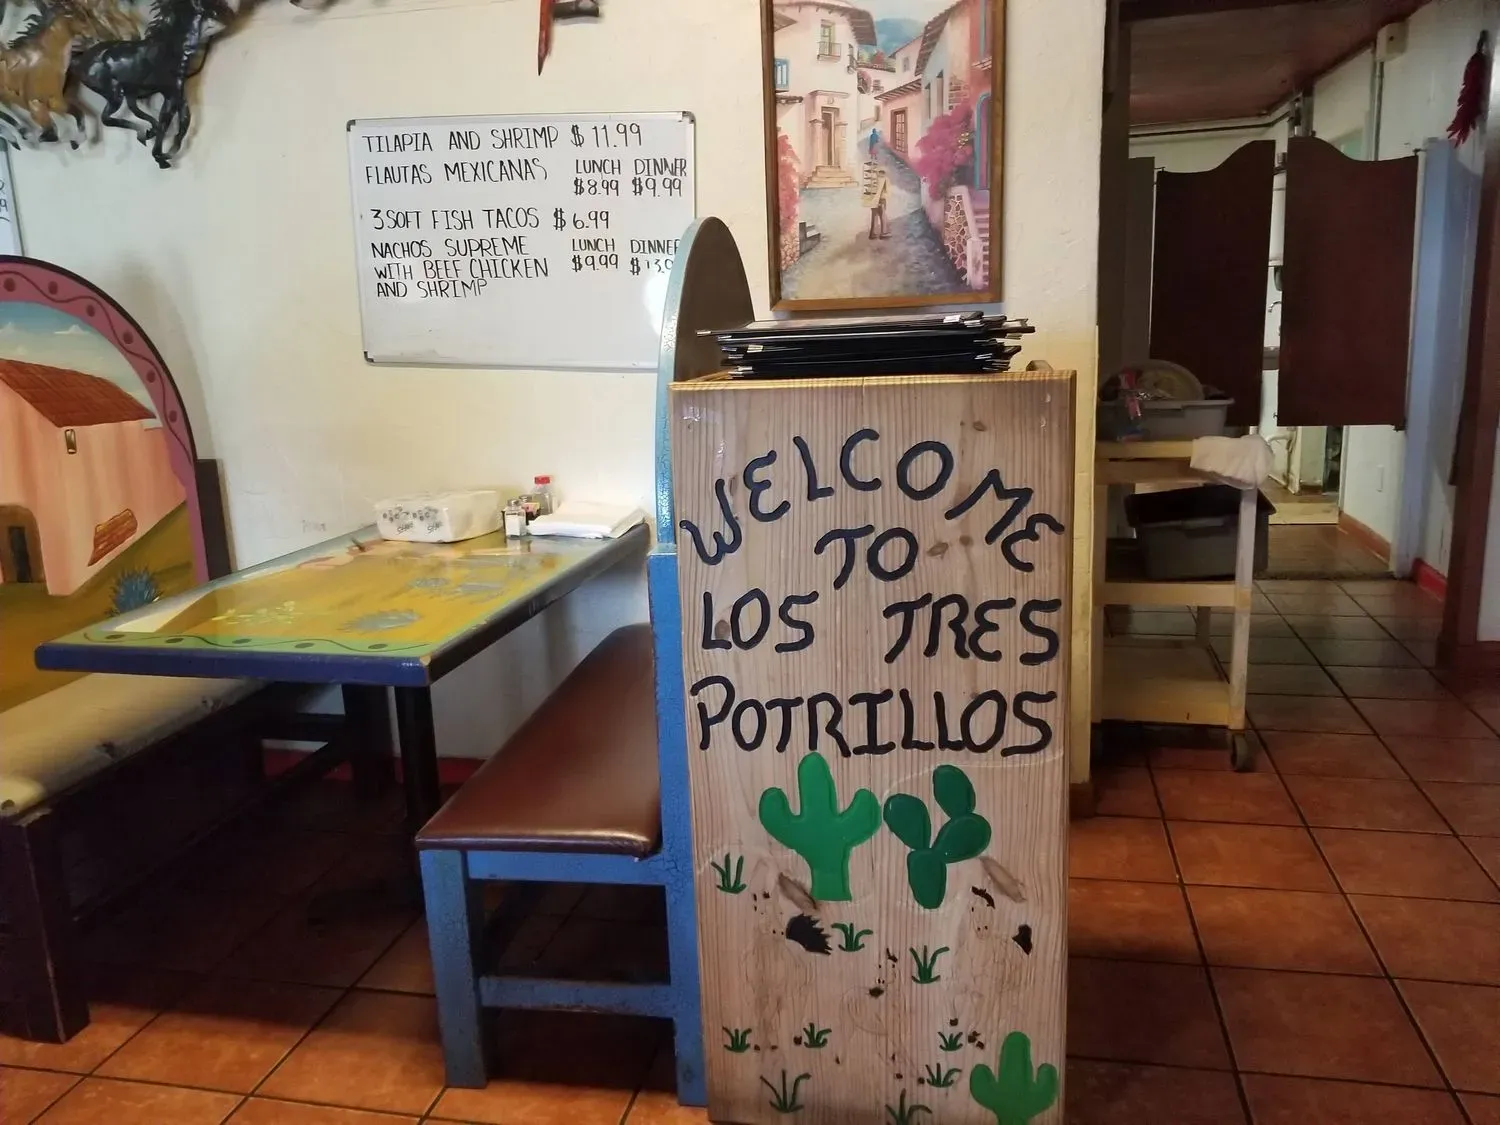 TILAPIA AND SHRIMP $11.99
FLAUTAS MEXICANAS LUNCH DINNER
$8.99 $9.99
3 SOFT FISH TACOS $6.99
NACHOS SUPREME LUNCH DINNER
WITH BEEF CHICKEN $9.99
AND SHRIMP
WELCOME
TO
LOS TRES
POTRILLOS